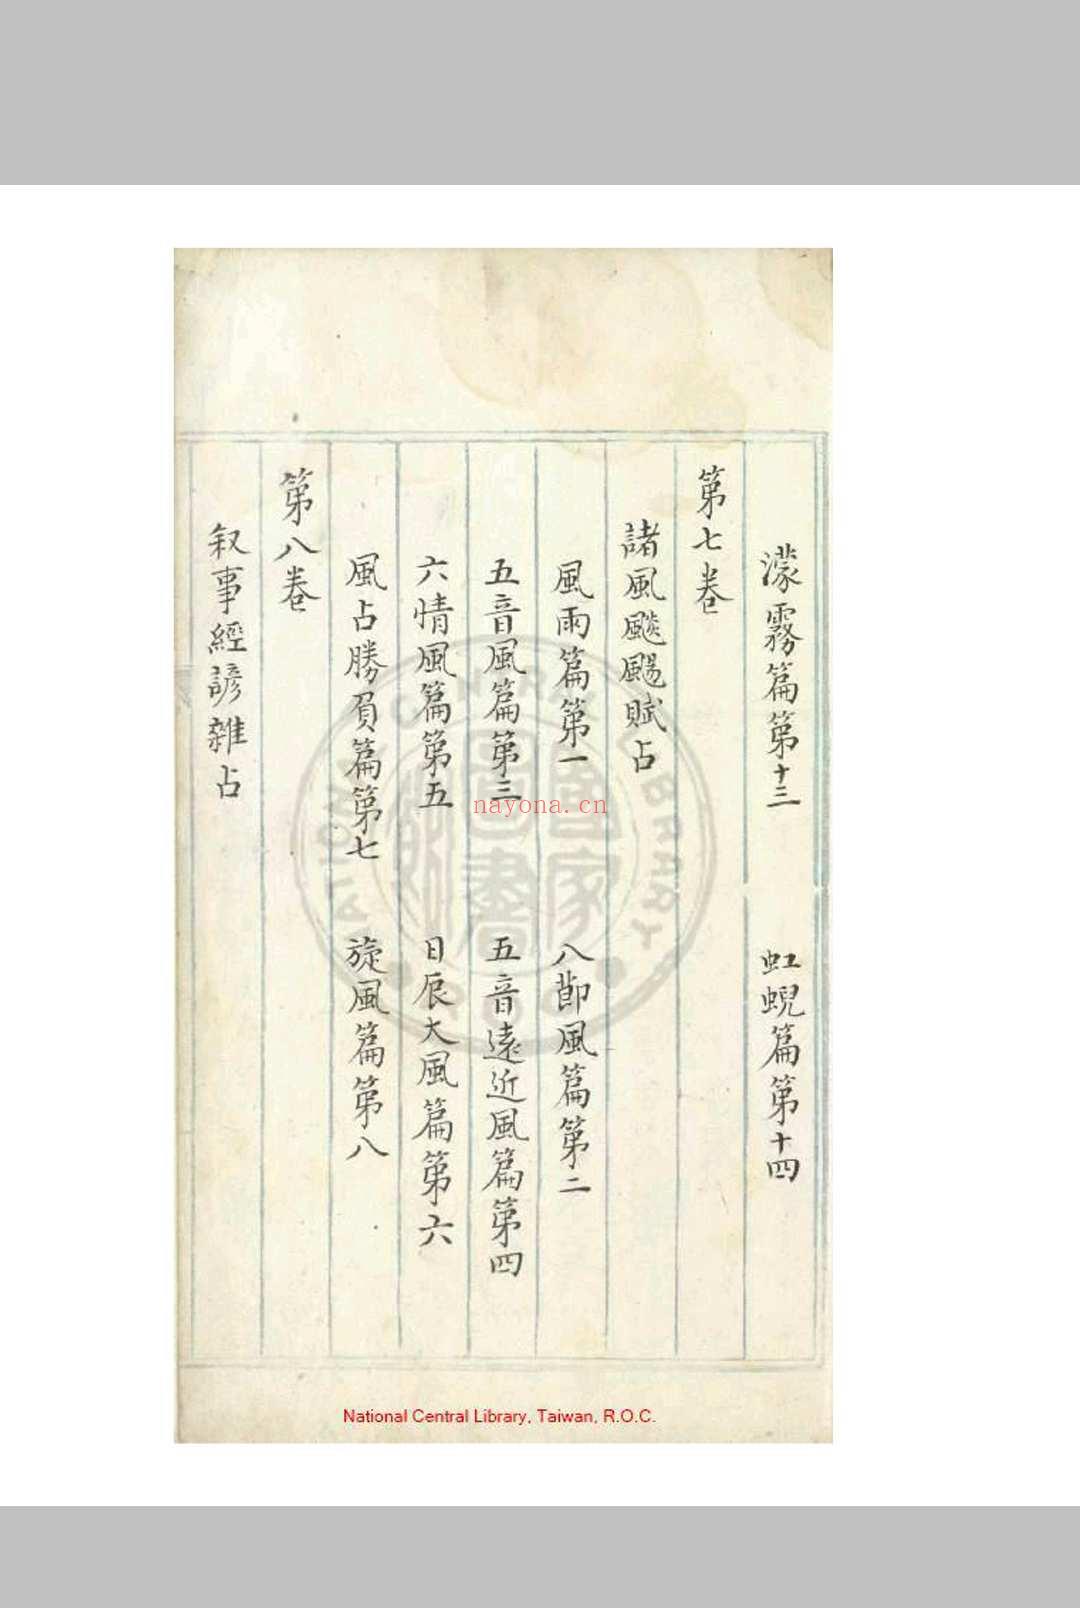 濛霧篇第十三 虹蜺篇第十四
第七卷
諸風飈颺賦占
風雨篇第一 八節風篇第二
五音風篇第三 五音遠近風篇第四
六情風篇第五 日辰大風篇第六
風占勝負篇第七 旋風篇第八
第八卷
叙事經諺雜占
nayona.cn
National Central Library, Taiwan, R.O.C.